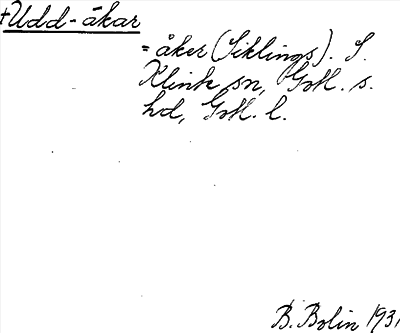 +Udd-åkar
= åker (Siklings). S.
Klinte sn, Gotl. s.
hd, Gotl. l.
B. Bolin 1931